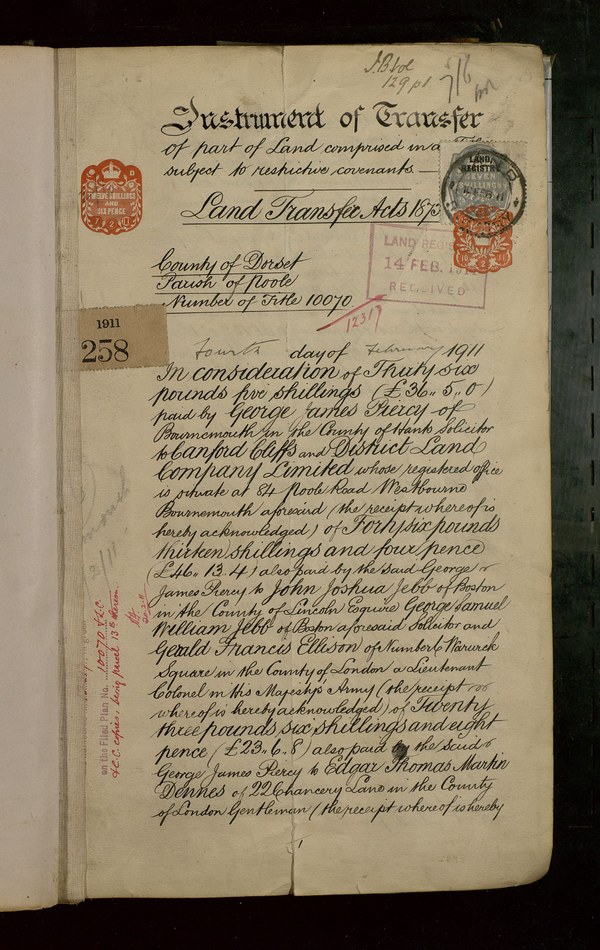 129 p1
7/6
Instrument of Transfer
of part of Land comprised in a
subject to restrictive covenants
Land Transfer Acts 1875
LAND REGISTRY
SEVEN
TWELVE SHILLINGS
AND
SIX PENCE
LAND REGIS
14 FEB. 19
RECEIVED
County of Dorset
Parish of Poole
Number of Title 10070
12317
1911
258
Fourth day of February 1911
In consideration of Thirty six
pounds five shillings (£36.. 5.. 0)
paid by George James Piercy of
Bournemouth in the County of Hants Solicitor
to Canford Cliffs and District Land
Company Limited whose registered office
is situate at 84 Poole Road Westbourne
Bournemouth aforesaid (the receipt whereof is
hereby acknowledged) of Forty six pounds
thirteen shillings and four pence
(£46.. 13.. 4) also paid by the said George
James Piercy to John Joshua Jebb of Boston
in the County of Lincoln Esquire George Samuel
William Jebb of Boston aforesaid Solicitor and
Gerald Francis Ellison of Number 6 Warwick
Square in the County of London a Lieutenant
Colonel in His Majesty's Army (the receipt
whereof is hereby acknowledged) of Twenty
three pounds six shillings and eight
pence (£23.. 6.. 8) also paid by the said
George James Piercy to Edgar Thomas Martin
Dennes of 22 Chancery Lane in the County
of London Gentleman (the receipt whereof is hereby
on the Filed Plan No. 10070 & C.C.
& C.C. copies, being parcel 13 & herein.
1